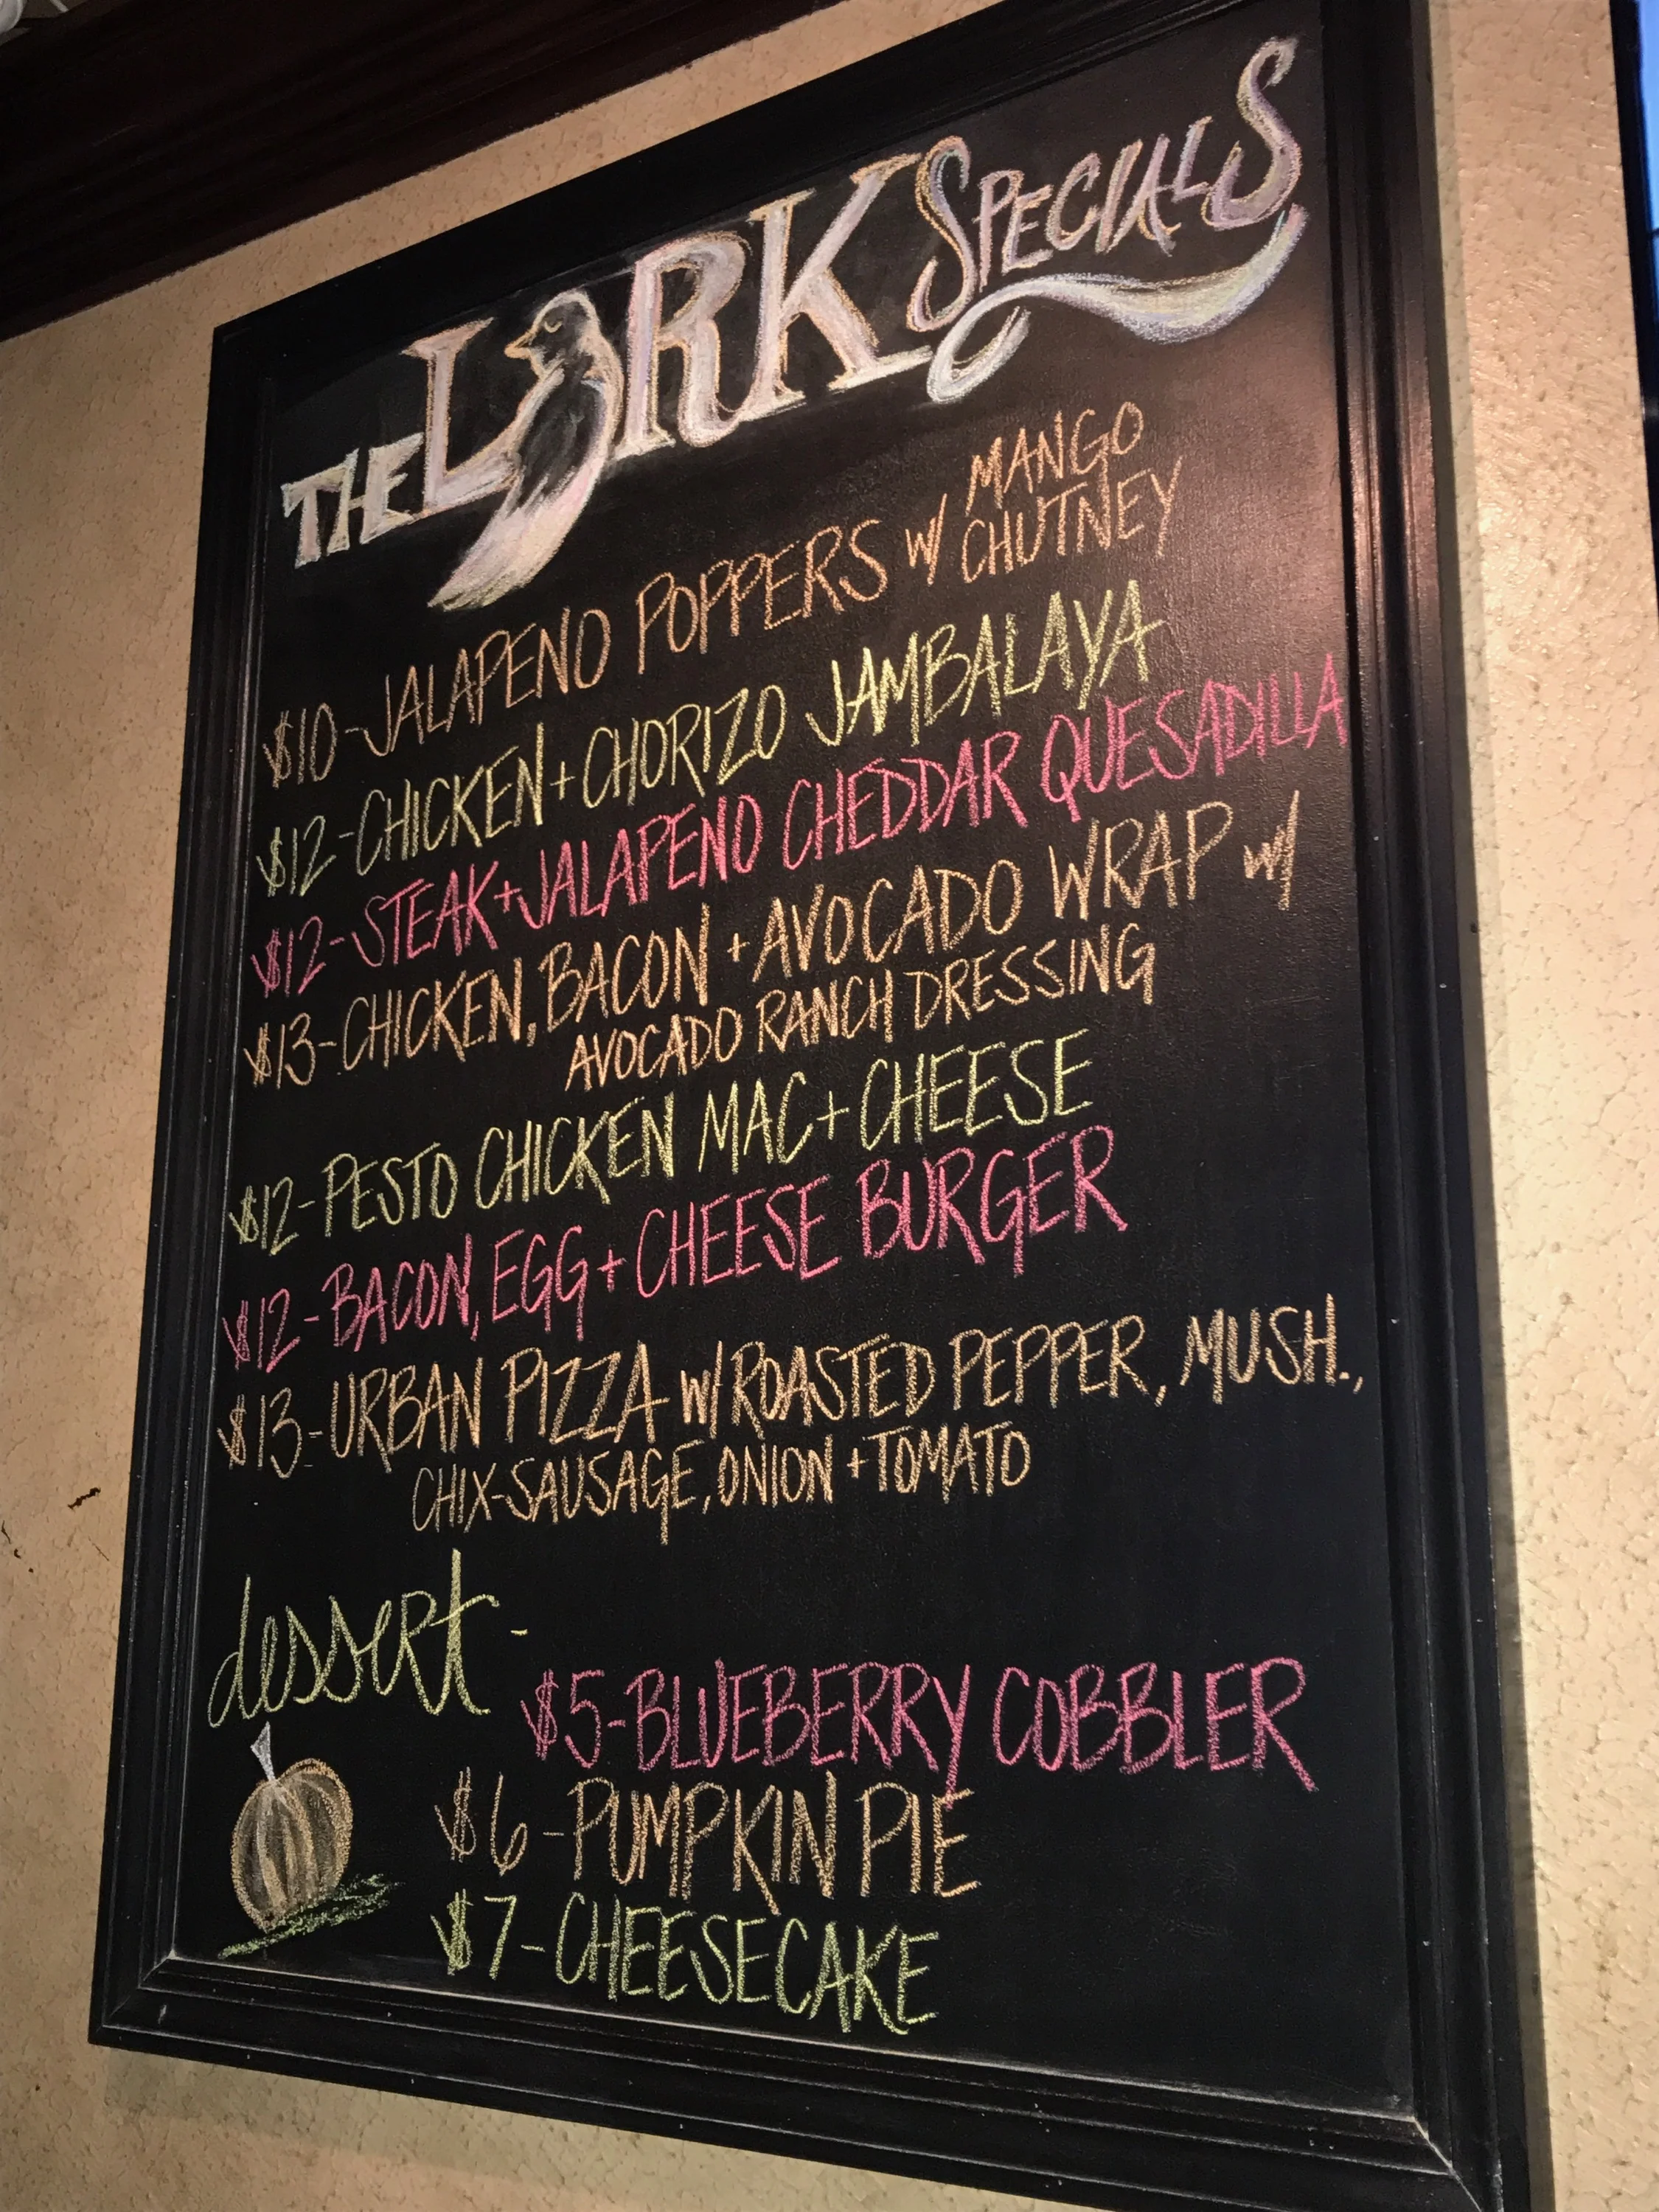 THE LARK SPECIALS
$10-JALAPENO POPPERS W/ MANGO CHUTNEY
$12-CHICKEN+CHORIZO JAMBALAYA
$12-STEAK+JALAPENO CHEDDAR QUESADILLA
$13-CHICKEN, BACON +AVOCADO WRAP W/
AVOCADO RANCH DRESSING
$12-PESTO CHICKEN MAC+CHEESE
$12-BACON, EGG+CHEESE BURGER
$13-URBAN PIZZA W/ROASTED PEPPER, MUSH.,
CHIX-SAUSAGE, ONION +TOMATO
dessert -
$5-BLUEBERRY COBBLER
$6-PUMPKIN PIE
$7-CHEESECAKE